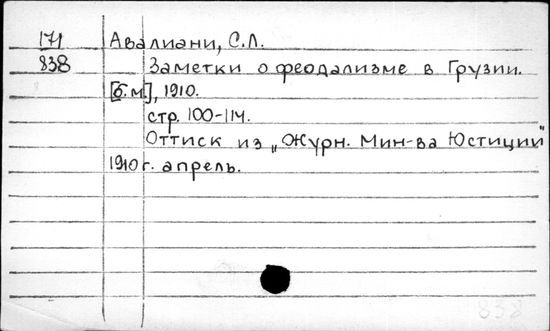 171 Авалиани, С.Л.
838 Заметки о феодализме в Грузии.
[б.м.], 1910.
стр. 100-114.
Оттиск из „Журн. Мин-ва Юстиции"
1910 г. апрель.
838